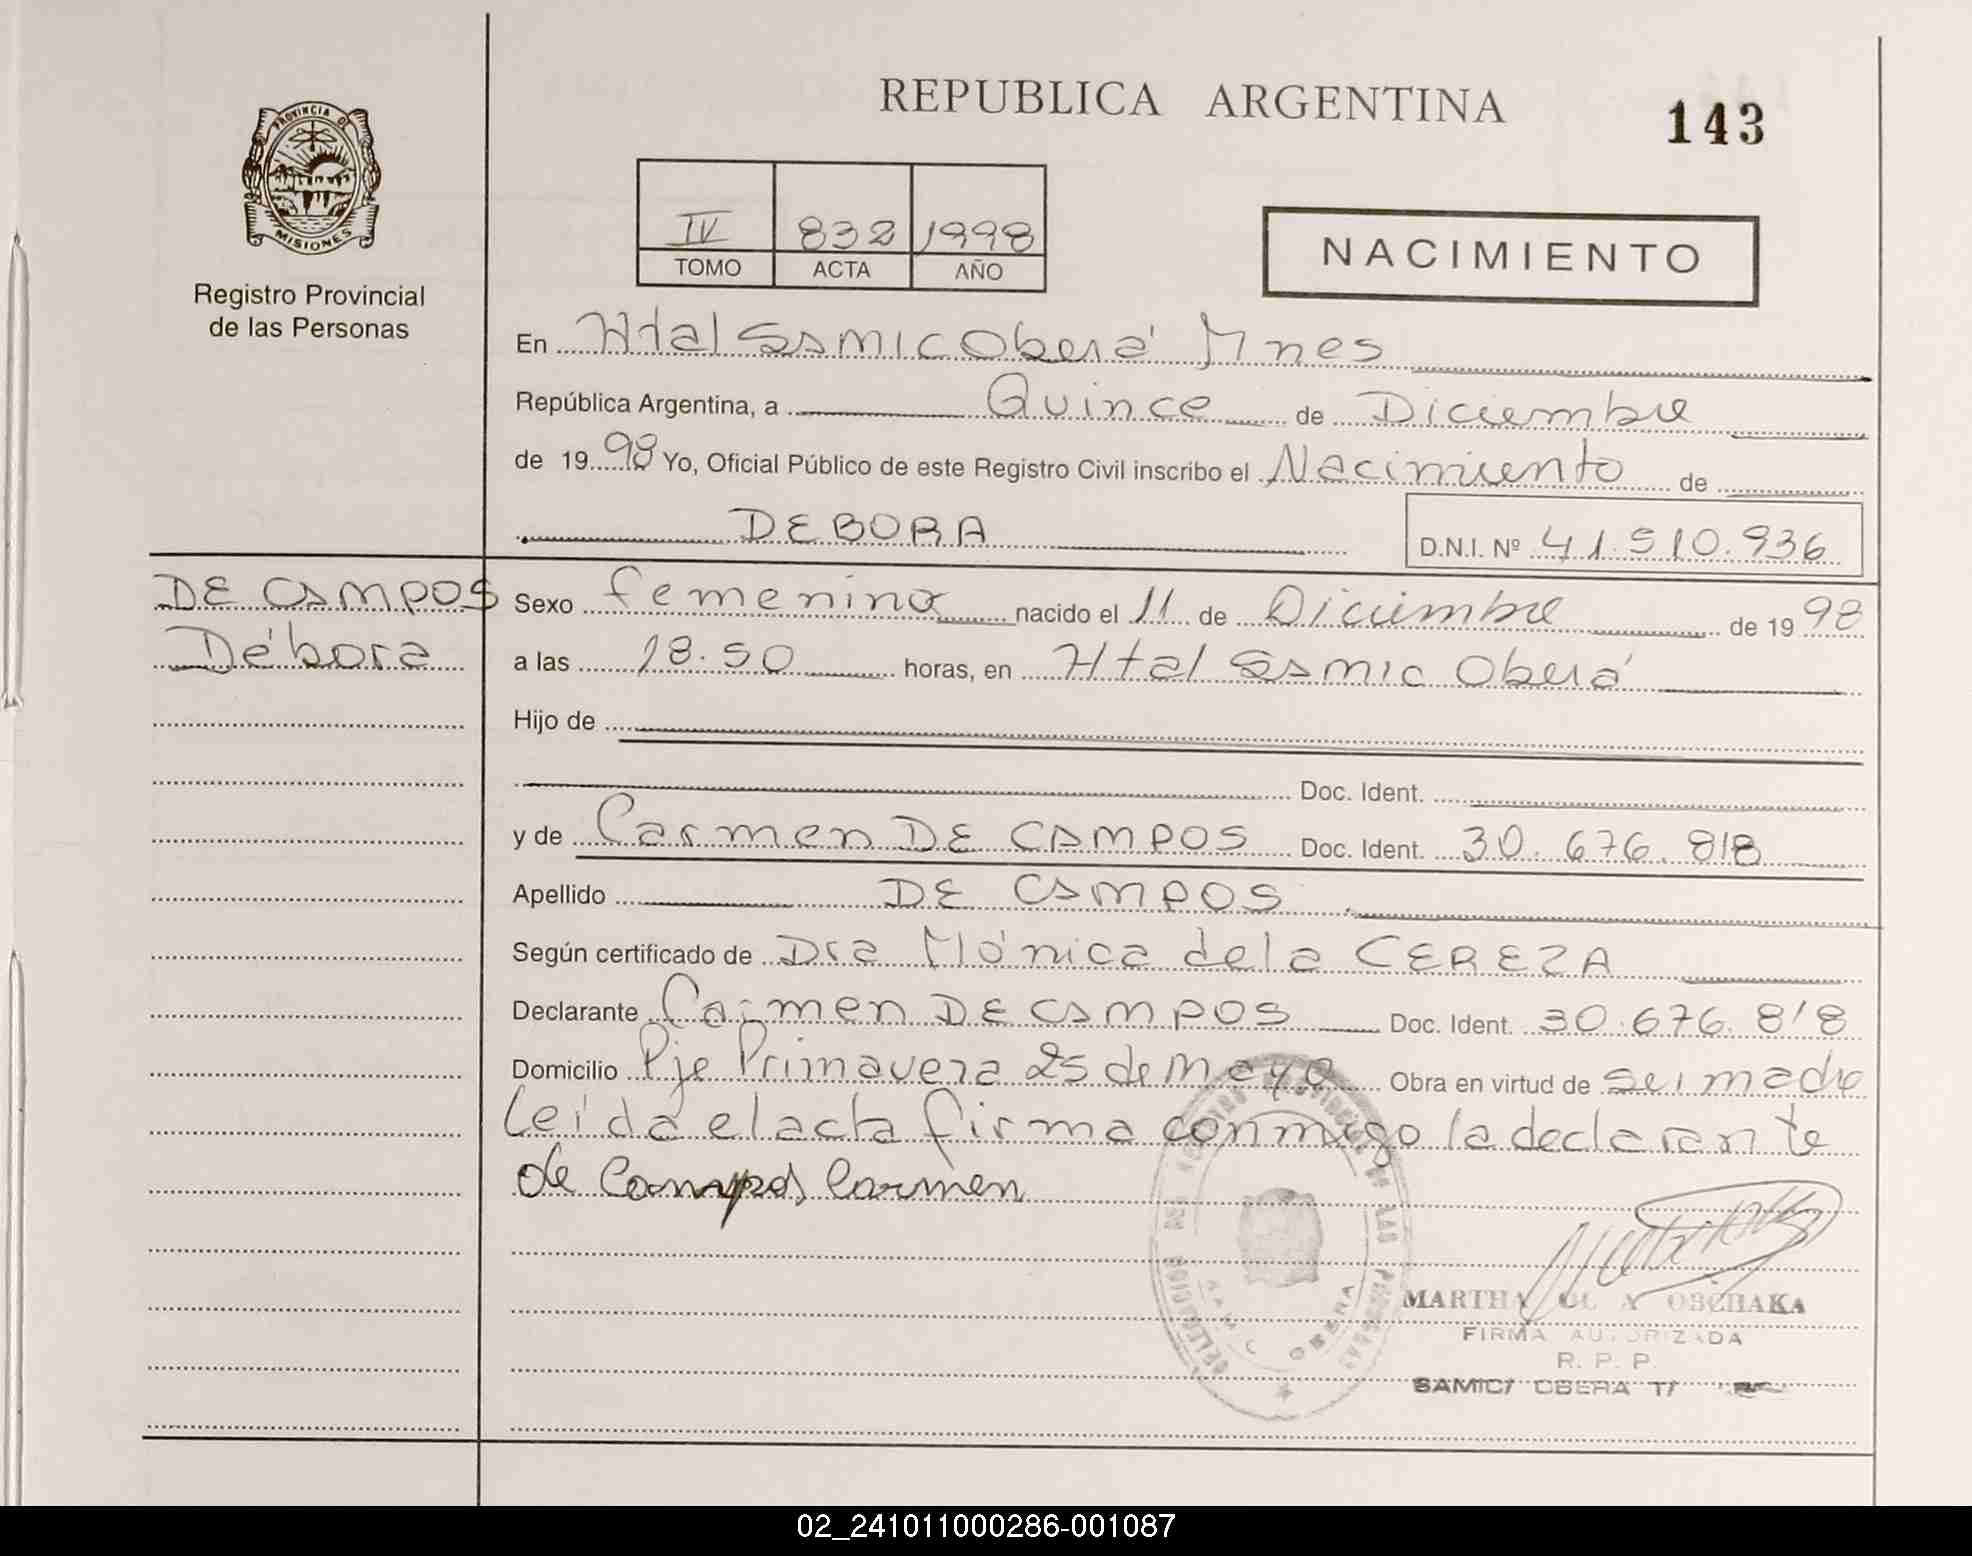 REPUBLICA ARGENTINA
143
PROVINCIA DE
MISIONES
Registro Provincial
de las Personas
IV 832 1998
TOMO ACTA AÑO
NACIMIENTO
En Htal Samic Oberá Mnes
República Argentina, a Quince de Diciembre
de 1998 Yo, Oficial Público de este Registro Civil inscribo el Nacimiento de
DEBORA D.N.I. Nº 41.510.936
DE CAMPOS
Débora
Sexo femenino nacido el 11 de Diciembre de 1998
a las 18.50 horas, en Htal Samic Oberá
Hijo de
Doc. Ident.
y de Carmen DE CAMPOS Doc. Ident. 30.676.818
Apellido DE CAMPOS
Según certificado de Dra Mónica de la CEREZA
Declarante Carmen DE CAMPOS Doc. Ident. 30.676.818
Domicilio Pje Primavera 25 de Mayo Obra en virtud de ser madre
Leída el acta firma conmigo la declarante
de Campos Carmen
OBERA
MARTHA OBCHAKA
FIRMA AUTORIZADA
R. P. P.
SAMIC/ OBERA
02_241011000286-001087